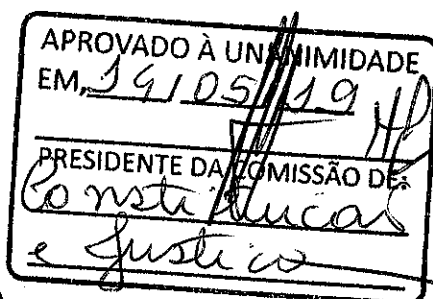 APROVADO À UNANIMIDADE
EM, 14/05/19
PRESIDENTE DA COMISSÃO DE:
Constituição
e Justiça